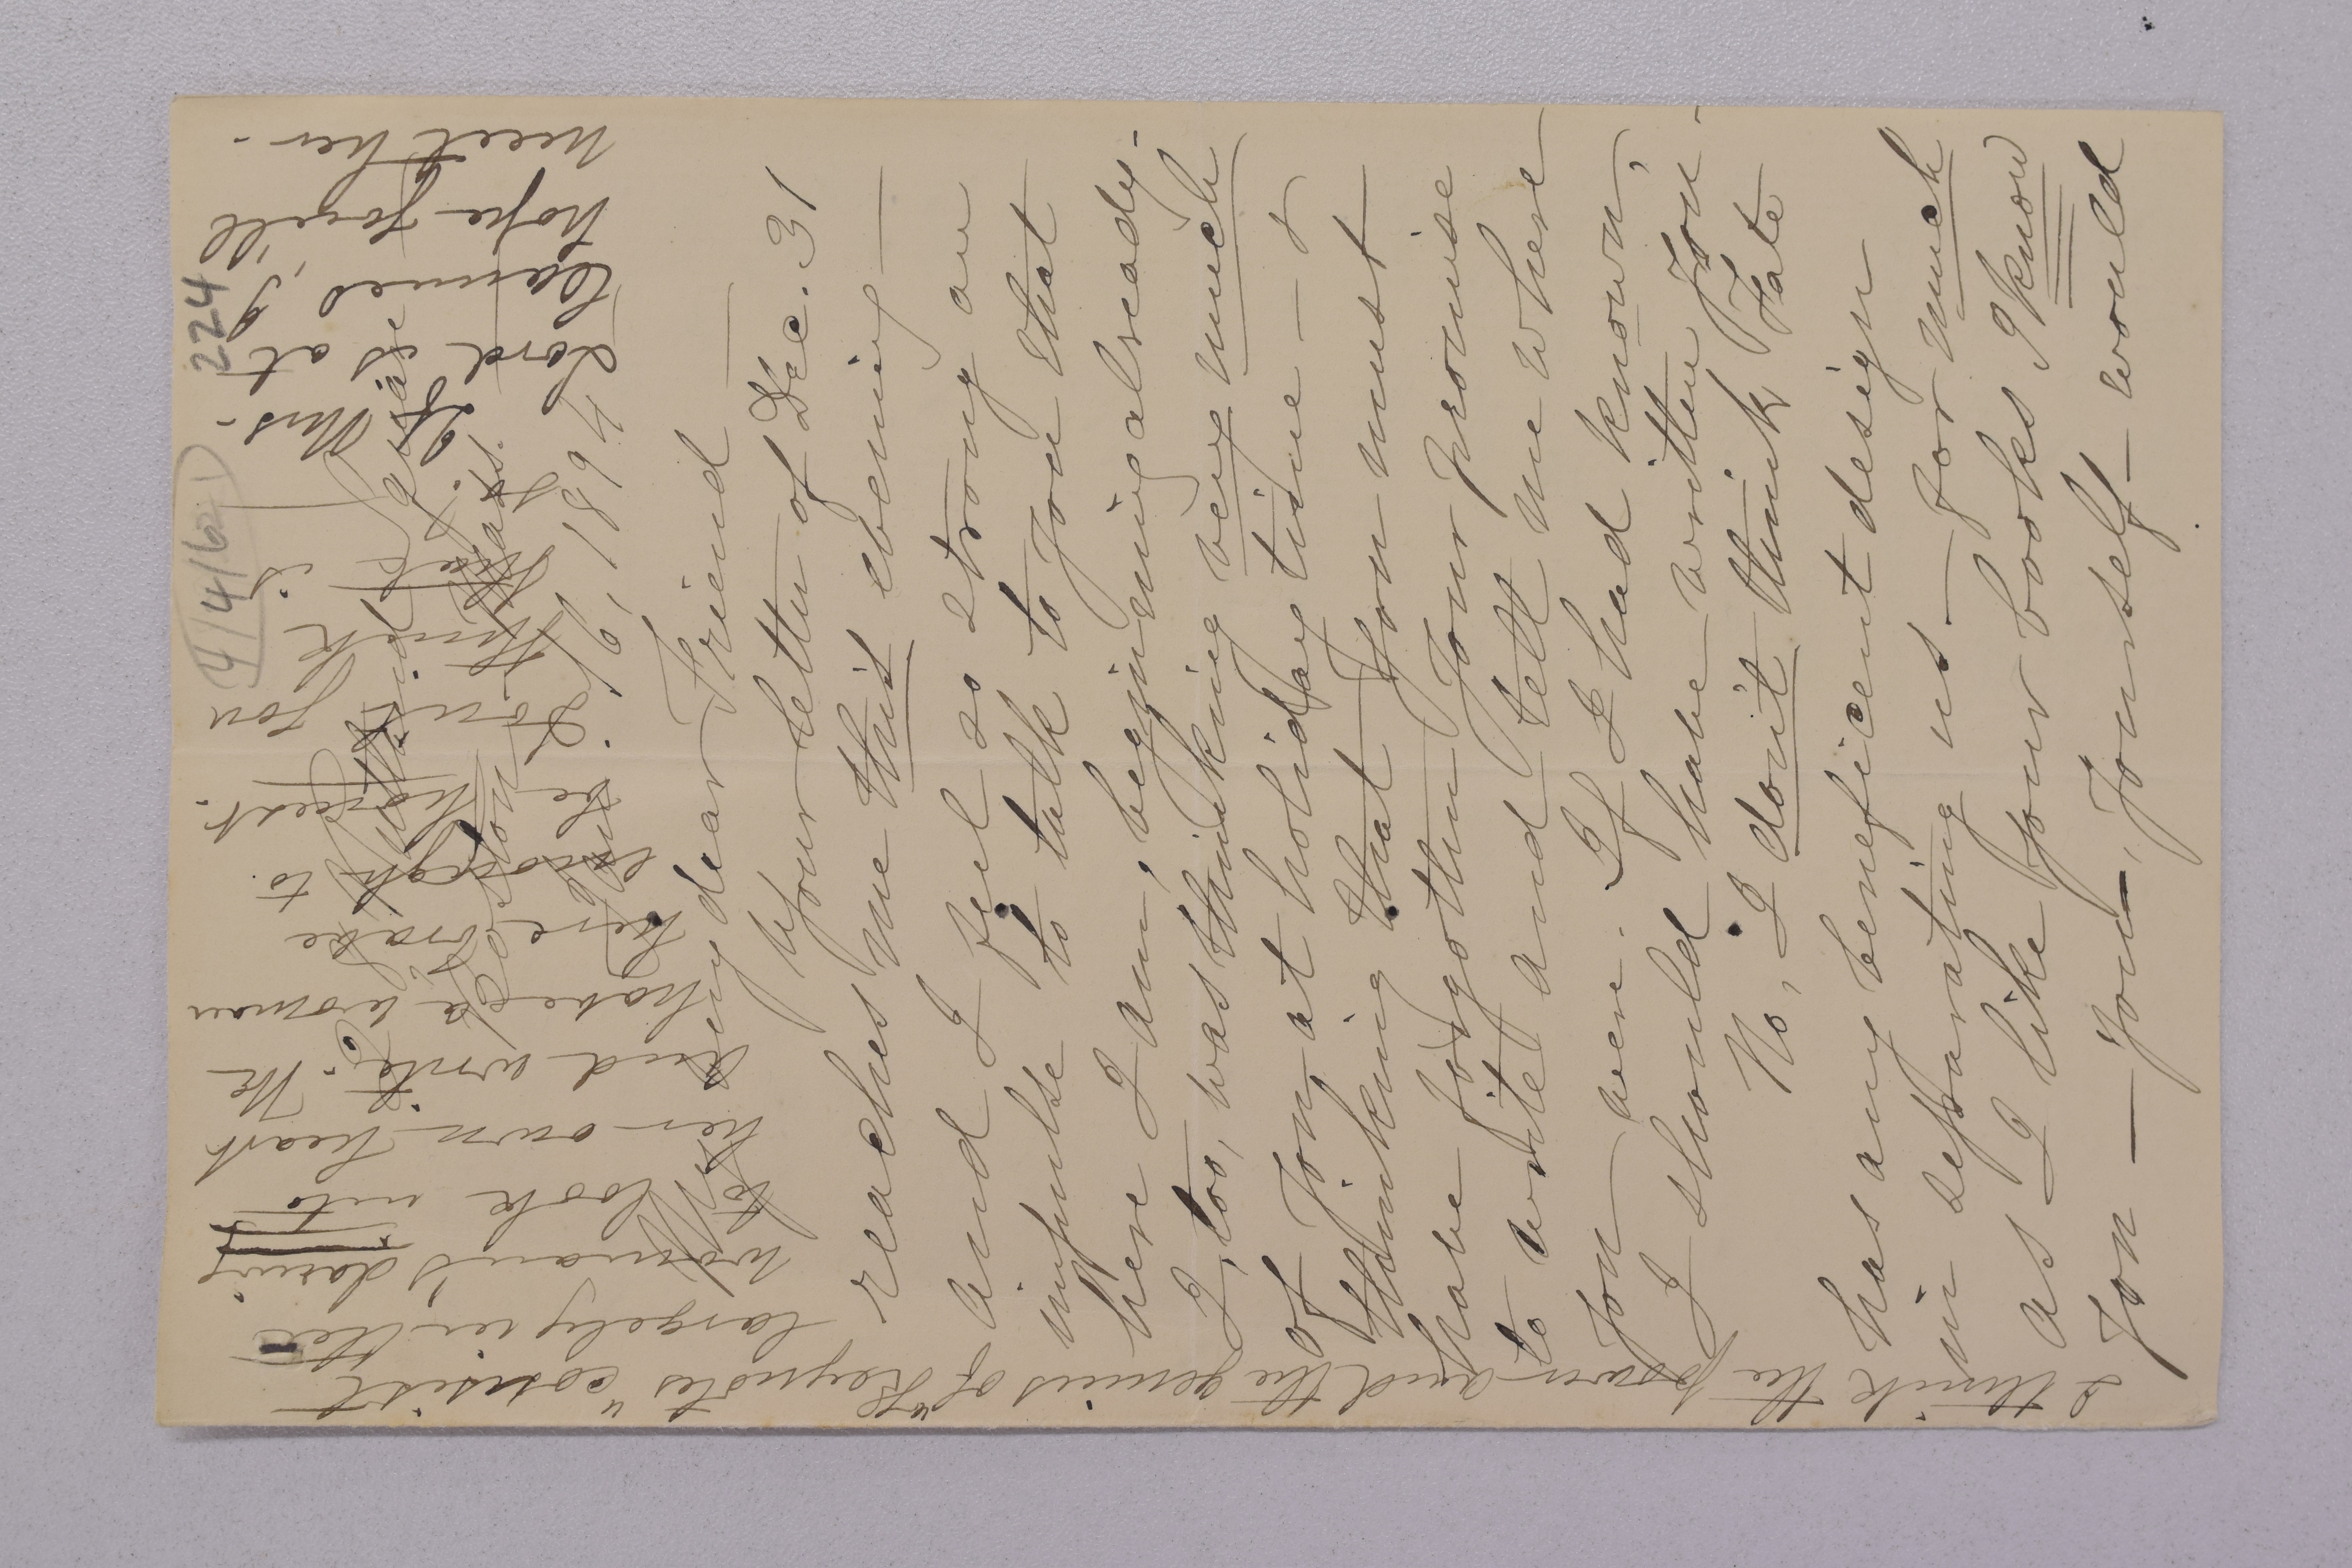 224
4/4/62
9, 1894
My dear Friend —
Your letter of Dec. 31
reaches me this evening —
and I feel so strong an
impulse to talk to you that
here I am, beginning already.
I, too, was thinking very much
of you at holiday time — &
thinking that you must
have forgotten your promise
to write and tell me where
you were. If I had known,
I should have written you.
No, I don't think Fate
has any beneficent design
in separating us — for much
as I like your books I know
you — you — yourself — would
I think the power and the genius of "Keynotes" consist
largely in the
woman's daring
to look into
her own heart
and write. We
have a woman
here brave
enough to
be honest.
Don't you
think
If Mrs.
Lord is at
Cannes, I
hope you'll
meet her.